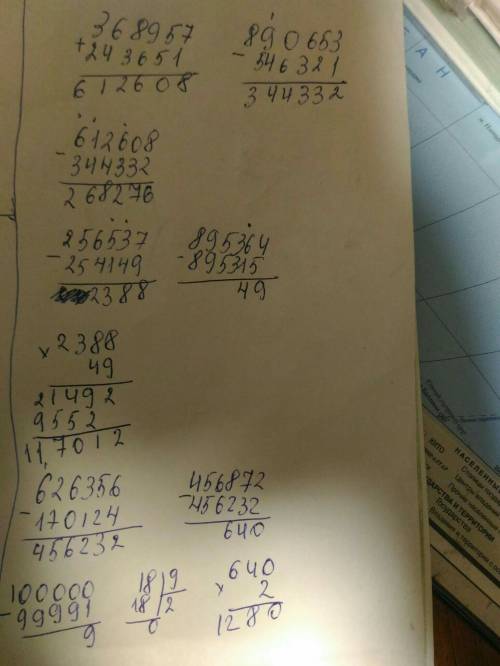 368957
+ 243651
612608
890653
- 546321
344332
612608
- 344332
268276
256537
- 254149
2388
895364
- 895315
49
× 2388
49
21492
9552
117012
626356
- 170124
456232
456872
- 456232
640
100000
- 99991
9
18 | 9
18 | 2
0
640
× 2
1280
Т А Н
НАСЕЛЕННЫЕ
КИТО
ТЕРРИТОРИИ